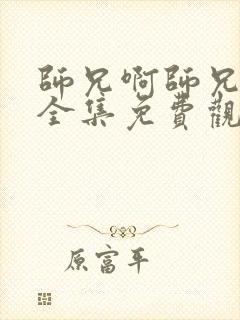 師兄啊師兄
全集免費觀
原富平